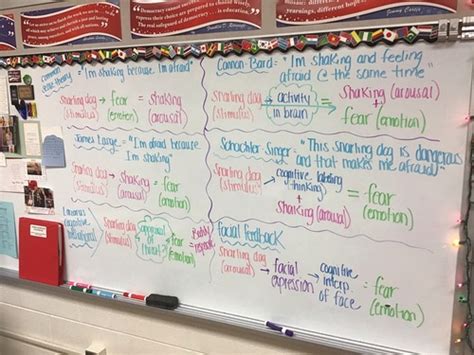 Common
sense theory = "I'm shaking because I'm afraid"
snarling dog → fear = shaking
(stimulus) (emotion) (arousal)
James Lange = "I'm afraid because
I'm shaking"
snarling dog → shaking = fear
(stimulus) (arousal) (emotion)
Lazarus
cognitive
snarling dog → appraisal → fear
(stimulus) of threat (emotion)
Cannon-Bard = "I'm shaking and feeling
afraid @ the same time"
snarling dog → activity = shaking (arousal)
(stimulus) in brain +
fear (emotion)
Schachter Singer = "This snarling dog is dangerous
and that makes me afraid"
snarling dog → cognitive labeling
(stimulus) thinking = fear
+ (emotion)
shaking (arousal)
facial feedback
snarling dog → facial → cognitive = fear
(arousal) expression interp (emotion)
of face